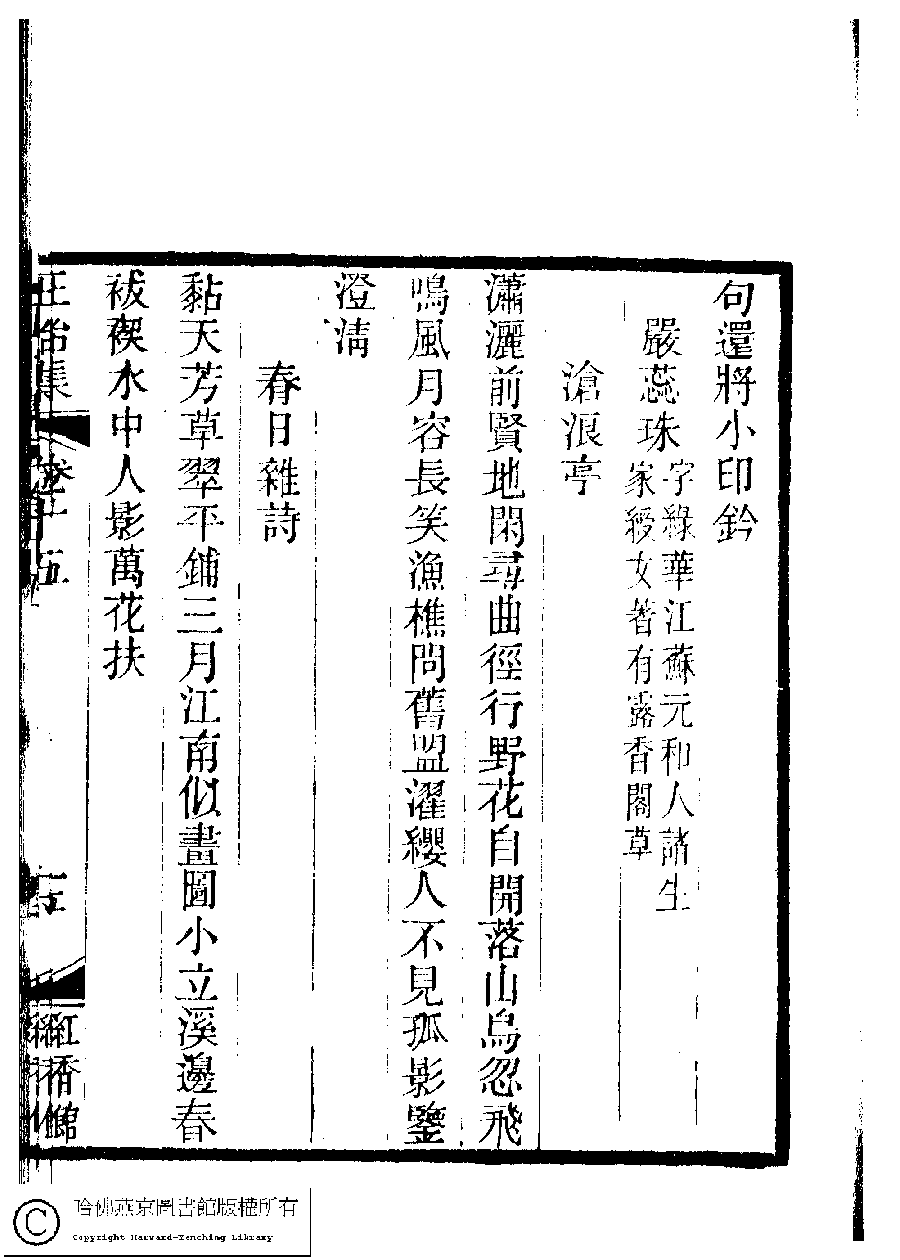 句還將小印鈐
嚴蕊珠
字綠華江蘇元和人諸生
家綬女著有露香閣草
滄浪亭
瀟灑前賢地閑尋曲徑行野花自開落山鳥忽飛
鳴風月容長笑漁樵問舊盟濯纓人不見孤影鑒
澄清
春日雜詩
黏天芳草翠平鋪三月江南似畫圖小立溪邊春
袚禊水中人影萬花扶
正始集
五
紅香館
哈佛燕京圖書館版權所有
Copyright Harvard-Yenching Library